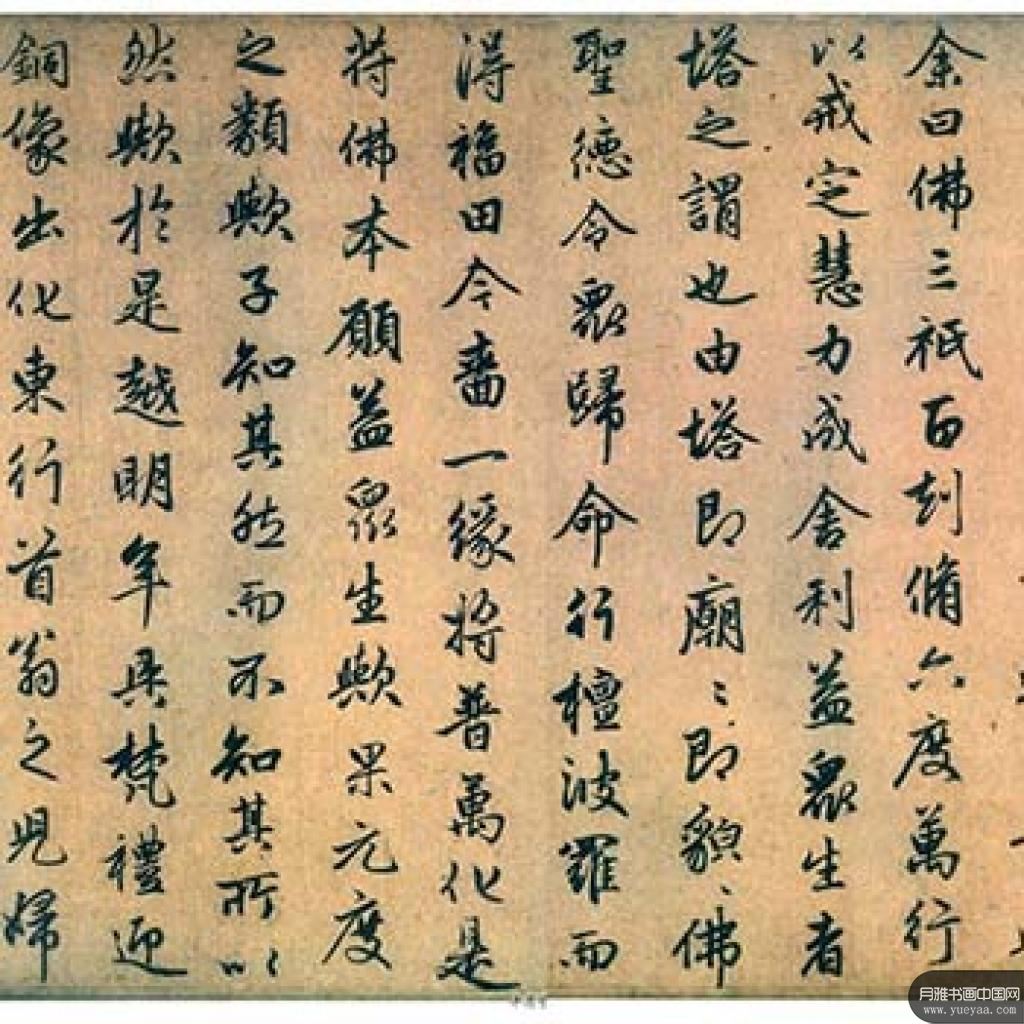 余曰佛三祇百劫脩六度萬行
以戒定慧力成舍利益眾生者
塔之謂也由塔即廟〻即貌〻佛
聖德令眾歸命行檀波羅而
得福田今嗇一緣將普萬化是
符佛本願益眾生歟果元度
之類歟子知其然而不知其所以
然歟於是越明年具梵禮迎
銅像出化東行首翁之児婦
月雅书画中国网
www.yueyaa.com